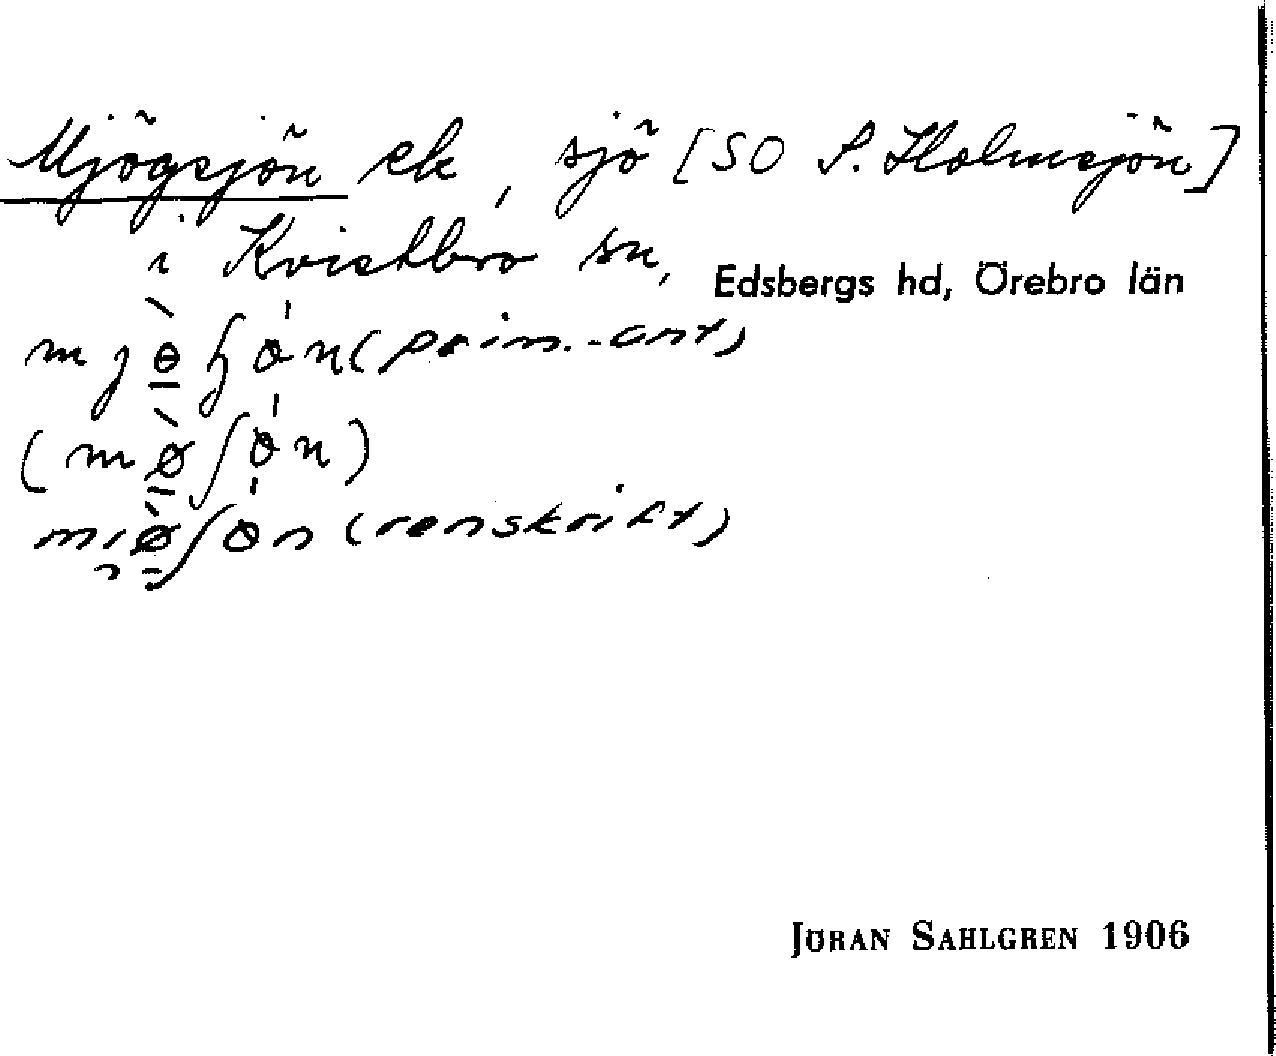 Mjögsjön ek, sjö [SO S. Holmsjön]
i Kvistbro sn, Edsbergs hd, Örebro län
(prim.-ant)
(renskrift)
JÖRAN SAHLGREN 1906